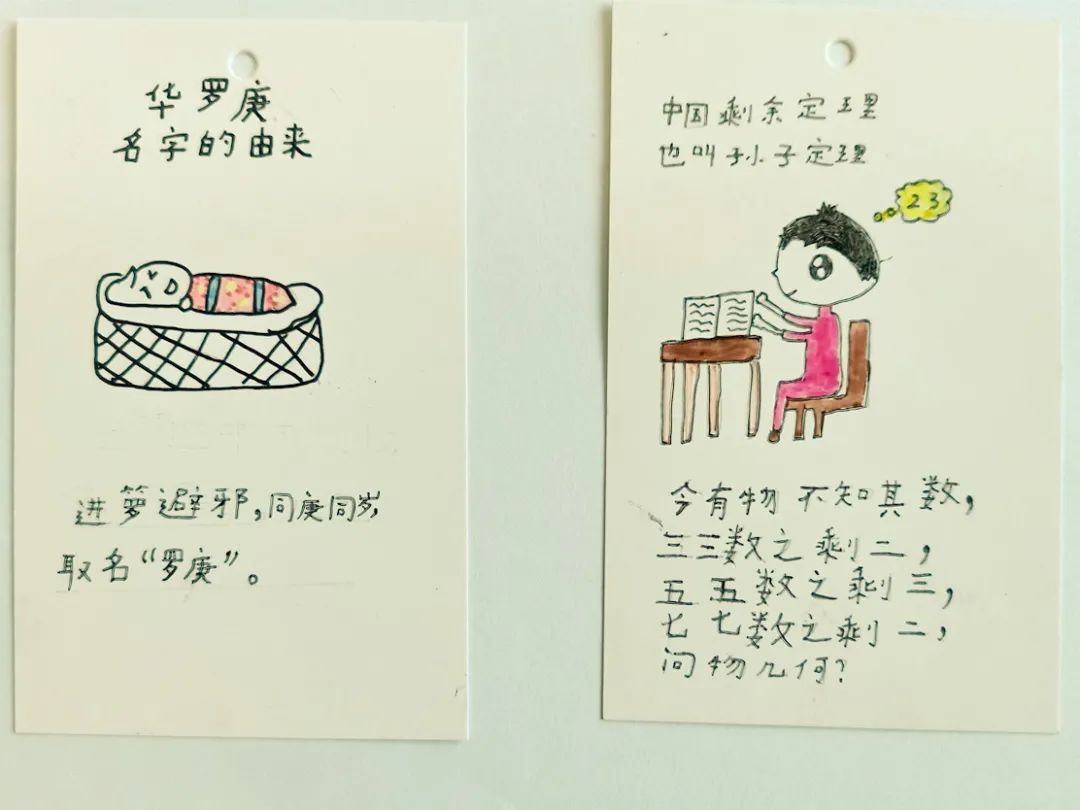 华罗庚
名字的由来
进箩避邪,同庚同岁,
取名“罗庚”。
中国剩余定理
也叫孙子定理
23
今有物不知其数,
三三数之剩二,
五五数之剩三,
七七数之剩二,
问物几何?